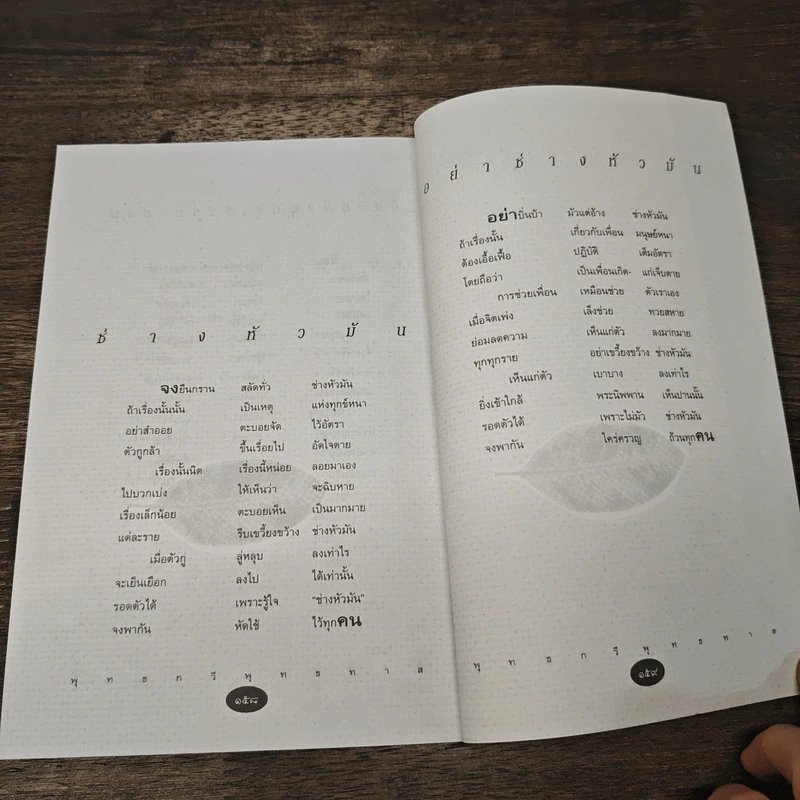 ช่างหัวมัน
จงยืนกราน สลัดทั่ว ช่างหัวมัน
ถ้าเรื่องนั้นนั้น เป็นเหตุ แห่งทุกข์หนา
อย่าสำออย ตะบอยจัด ไว้อัตรา
ตัวกูกล้า ขึ้นเรื่อยไป อัดใจตาย
เรื่องนั้นนิด เรื่องนี้หน่อย ลอยมาเอง
ไปบวกเบ่ง ให้เห็นว่า จะฉิบหาย
เรื่องเล็กน้อย ตะบอยเห็น เป็นมากมาย
แต่ละราย รีบเขวี้ยงขว้าง ช่างหัวมัน
เมื่อตัวกู ลู่หลุบ ลงเท่าไร
จะเย็นเยือก ลงไป ได้เท่านั้น
รอดตัวได้ เพราะรู้ใจ "ช่างหัวมัน"
จงพากัน หัดใช้ ไว้ทุกคน
พุทธกวีพุทธทาส
๑๕๘
อย่าช่างหัวมัน
อย่าบิ่นบ้า มัวแต่อ้าง ช่างหัวมัน
ถ้าเรื่องนั้น เกี่ยวกับเพื่อน มนุษย์หนา
ต้องเอื้อเฟื้อ ปฏิบัติ เต็มอัตรา
โดยถือว่า เป็นเพื่อนเกิด- แก่เจ็บตาย
การช่วยเพื่อน เหมือนช่วย ตัวเราเอง
เมื่อจิตเพ่ง เล็งช่วย ทวยสหาย
ย่อมลดความ เห็นแก่ตัว ลงมากมาย
ทุกทุกราย อย่าเขวี้ยงขว้าง ช่างหัวมัน
เห็นแก่ตัว เบาบาง ลงเท่าไร
ยิ่งเข้าใกล้ พระนิพพาน เห็นปานนั้น
รอดตัวได้ เพราะไม่มัว ช่างหัวมัน
จงพากัน ใคร่ครวญ ถ้วนทุกคน
พุทธกวีพุทธทาส
๑๕๙